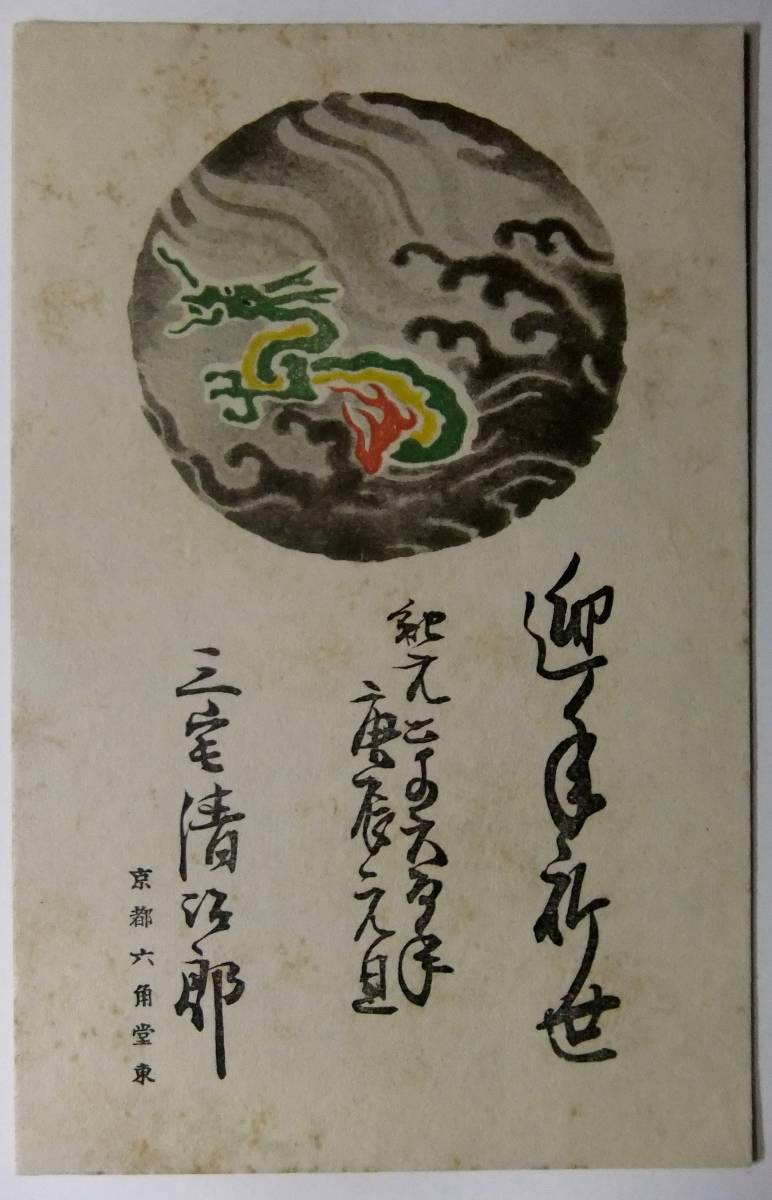 迎年祈世
紀元二千六百年
庚辰元旦
三宅清治郎
京都六角堂東